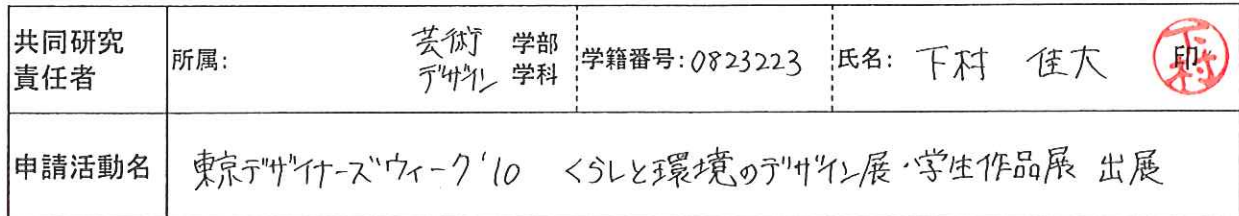 共同研究
責任者
所属: 芸術 学部
デザイン 学科
学籍番号:0823223
氏名: 下村 佳大 印
下村
申請活動名
東京デザイナーズウィーク'10 くらしと環境のデザイン展・学生作品展 出展